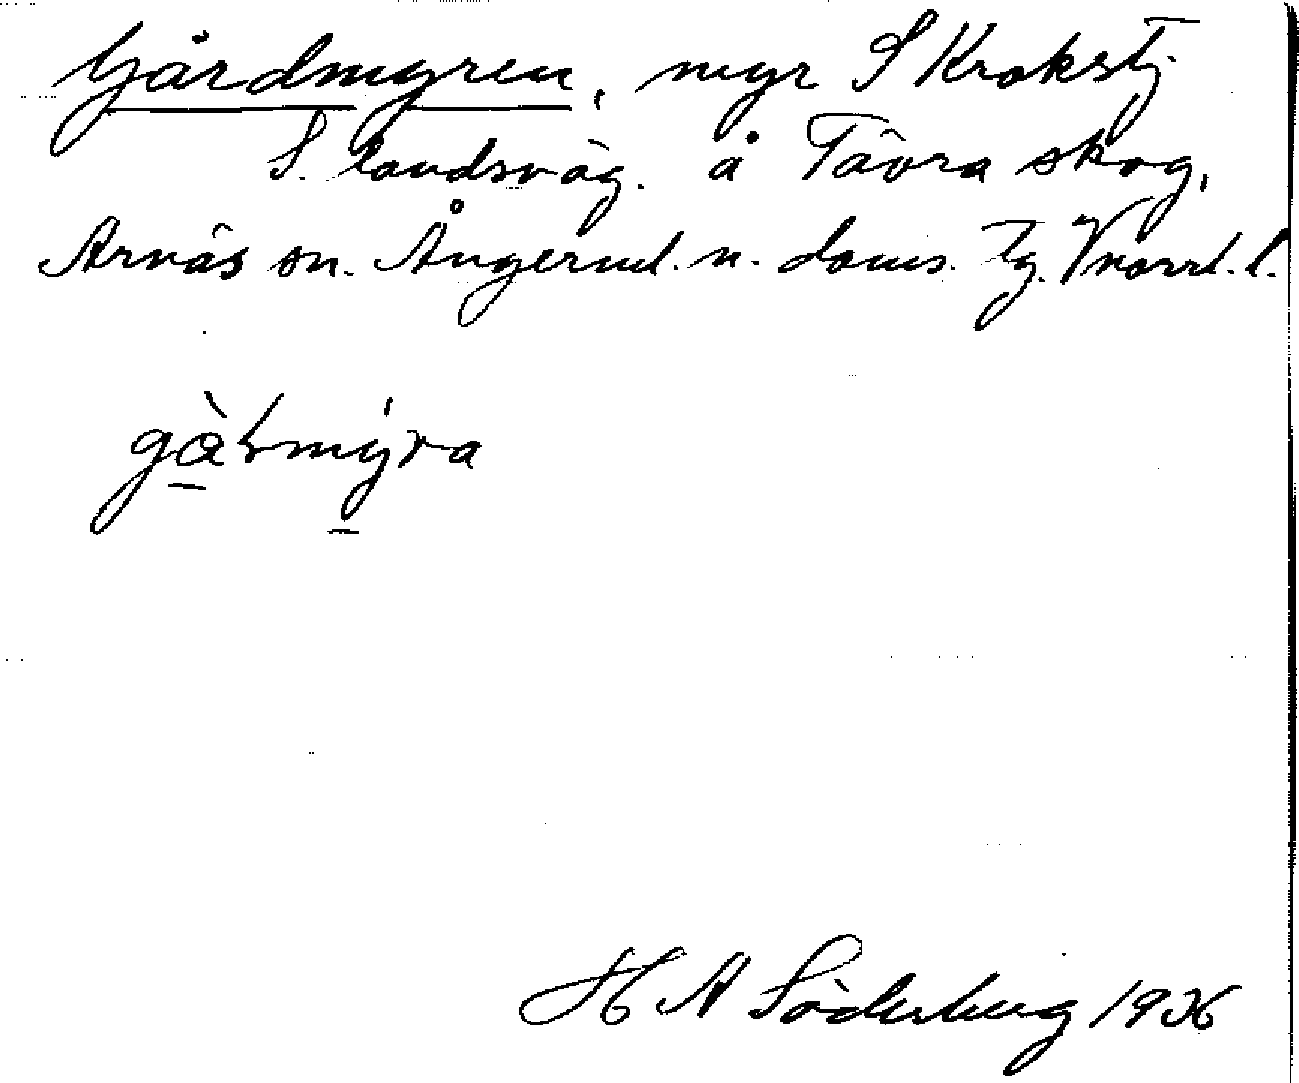 Gårdmyren, myr S Krokstj.
S. landsväg. å Tävra skog,
Arnäs sn. Ångerml. n. doms. Tg. Vnorrl. l.
H A Söderberg 1936